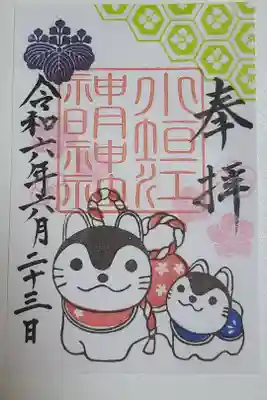 奉拝
小垣江
神明神社
令和六年六月二十三日